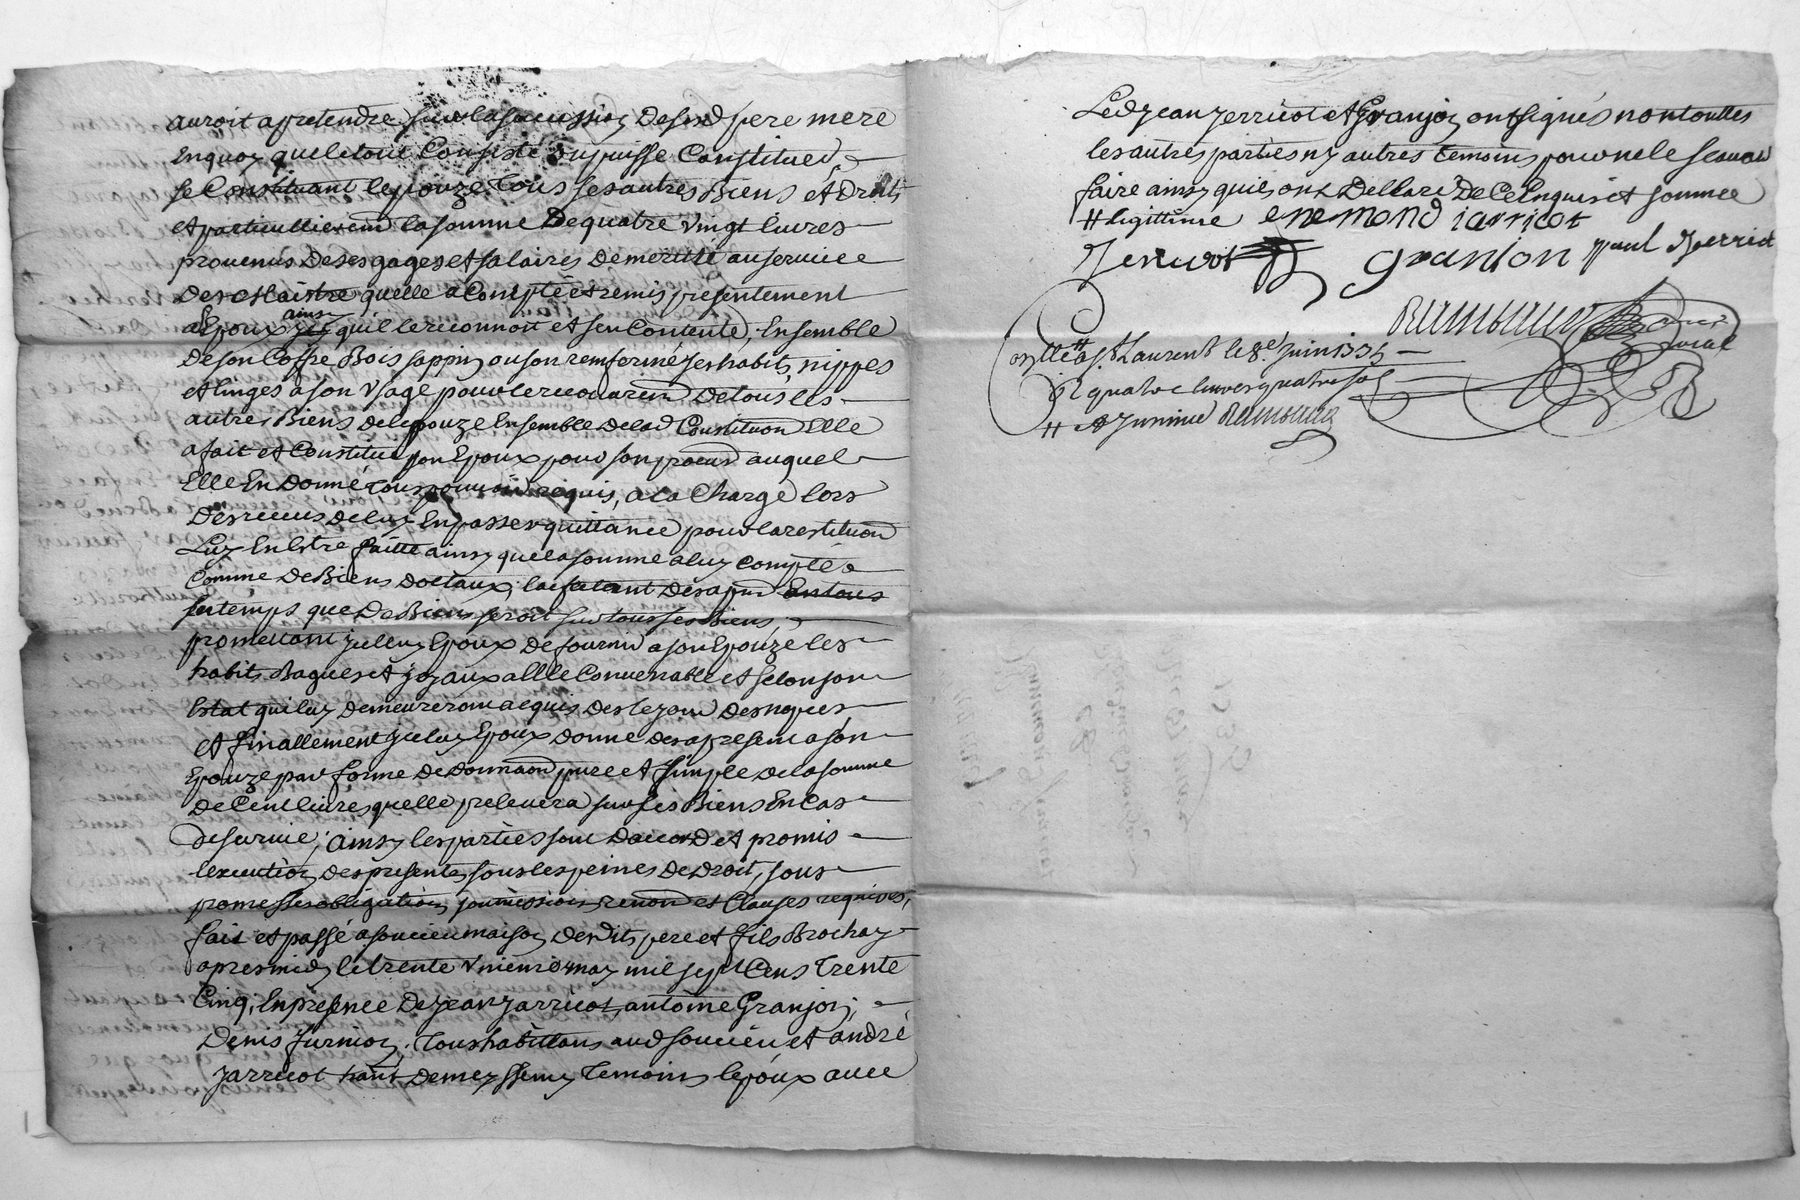 auroit a pretendre sur la succession de sesd pere mere
En quoy que le tout Consiste ou puisse Constituer,
se Constituant lepouze tous ses autres Biens et Droits
et particullierem la somme De quatre vingt livres
provenus De ses gages et salaires De merité au service
Des Maistre quelle a Compté et remis presentement
a Epoux ainsi quil le reconnoit et sen Contente, Ensemble
De son Coffre Bois sappin ou son remfermé ses habits, nippes
et linges a son Vsage pour le recouvrem De tous les
autres Biens de lepouze Ensemble de lad Constituon Elle
a fait et Constitué son Epoux pour son procur auquel
Elle En Donné tous pouvoir requis, a la Charge lors
Des receus de luy En passer quittance pour la restituon
Luy En Estre faitte ainsy que la somme a luy Compté
Comme De Biens Dottaux, lasseurant Des a pnt En tous
sertemps que De Bien seroit sur tous ses Biens,
promettant jcelluy Epoux De fournir a son Epouze les
habits Bagues et joyaux a Elle Convenable et selon son
Estat qui luy Demeureront acquis des le jour Des nopces
et finallement jceluy Epoux donne des a present a son
Epouze par forme De donnaon pure et simple De la somme
De Cent livres quelle prelevera sur ses Biens En Cas
De survie; ainsy les parties sont Daccord et promis
lexecution des presentes, sous les peines De Droit, sous
promesses obligations, soumissions, renon et Clauses requises,
fait et passé a soucieu maison desdits pere et fils Brochay
apres midy le trente Vnieme may mil sept Cens trente
Cinq, En presence De jean jarricot, antoine Granjon,
Denis furnion, tous habittans aud soucieu et andré
jarricot habt De meyssemy temoins lepoux avec
Led jean jerricot et Granjon ont signés non touttes
les autres parties ny autres temoins pour ne le scavoir
faire ainsy quils ont Dellaré De Ce Enquis et sommé
# legittime enemond iarricot
Jericot granion paul Jerricot
Raimbaud
Con.llé a St Laurent le 8e. juin 1735
R quatre livres quatre sols
# Raimbaud